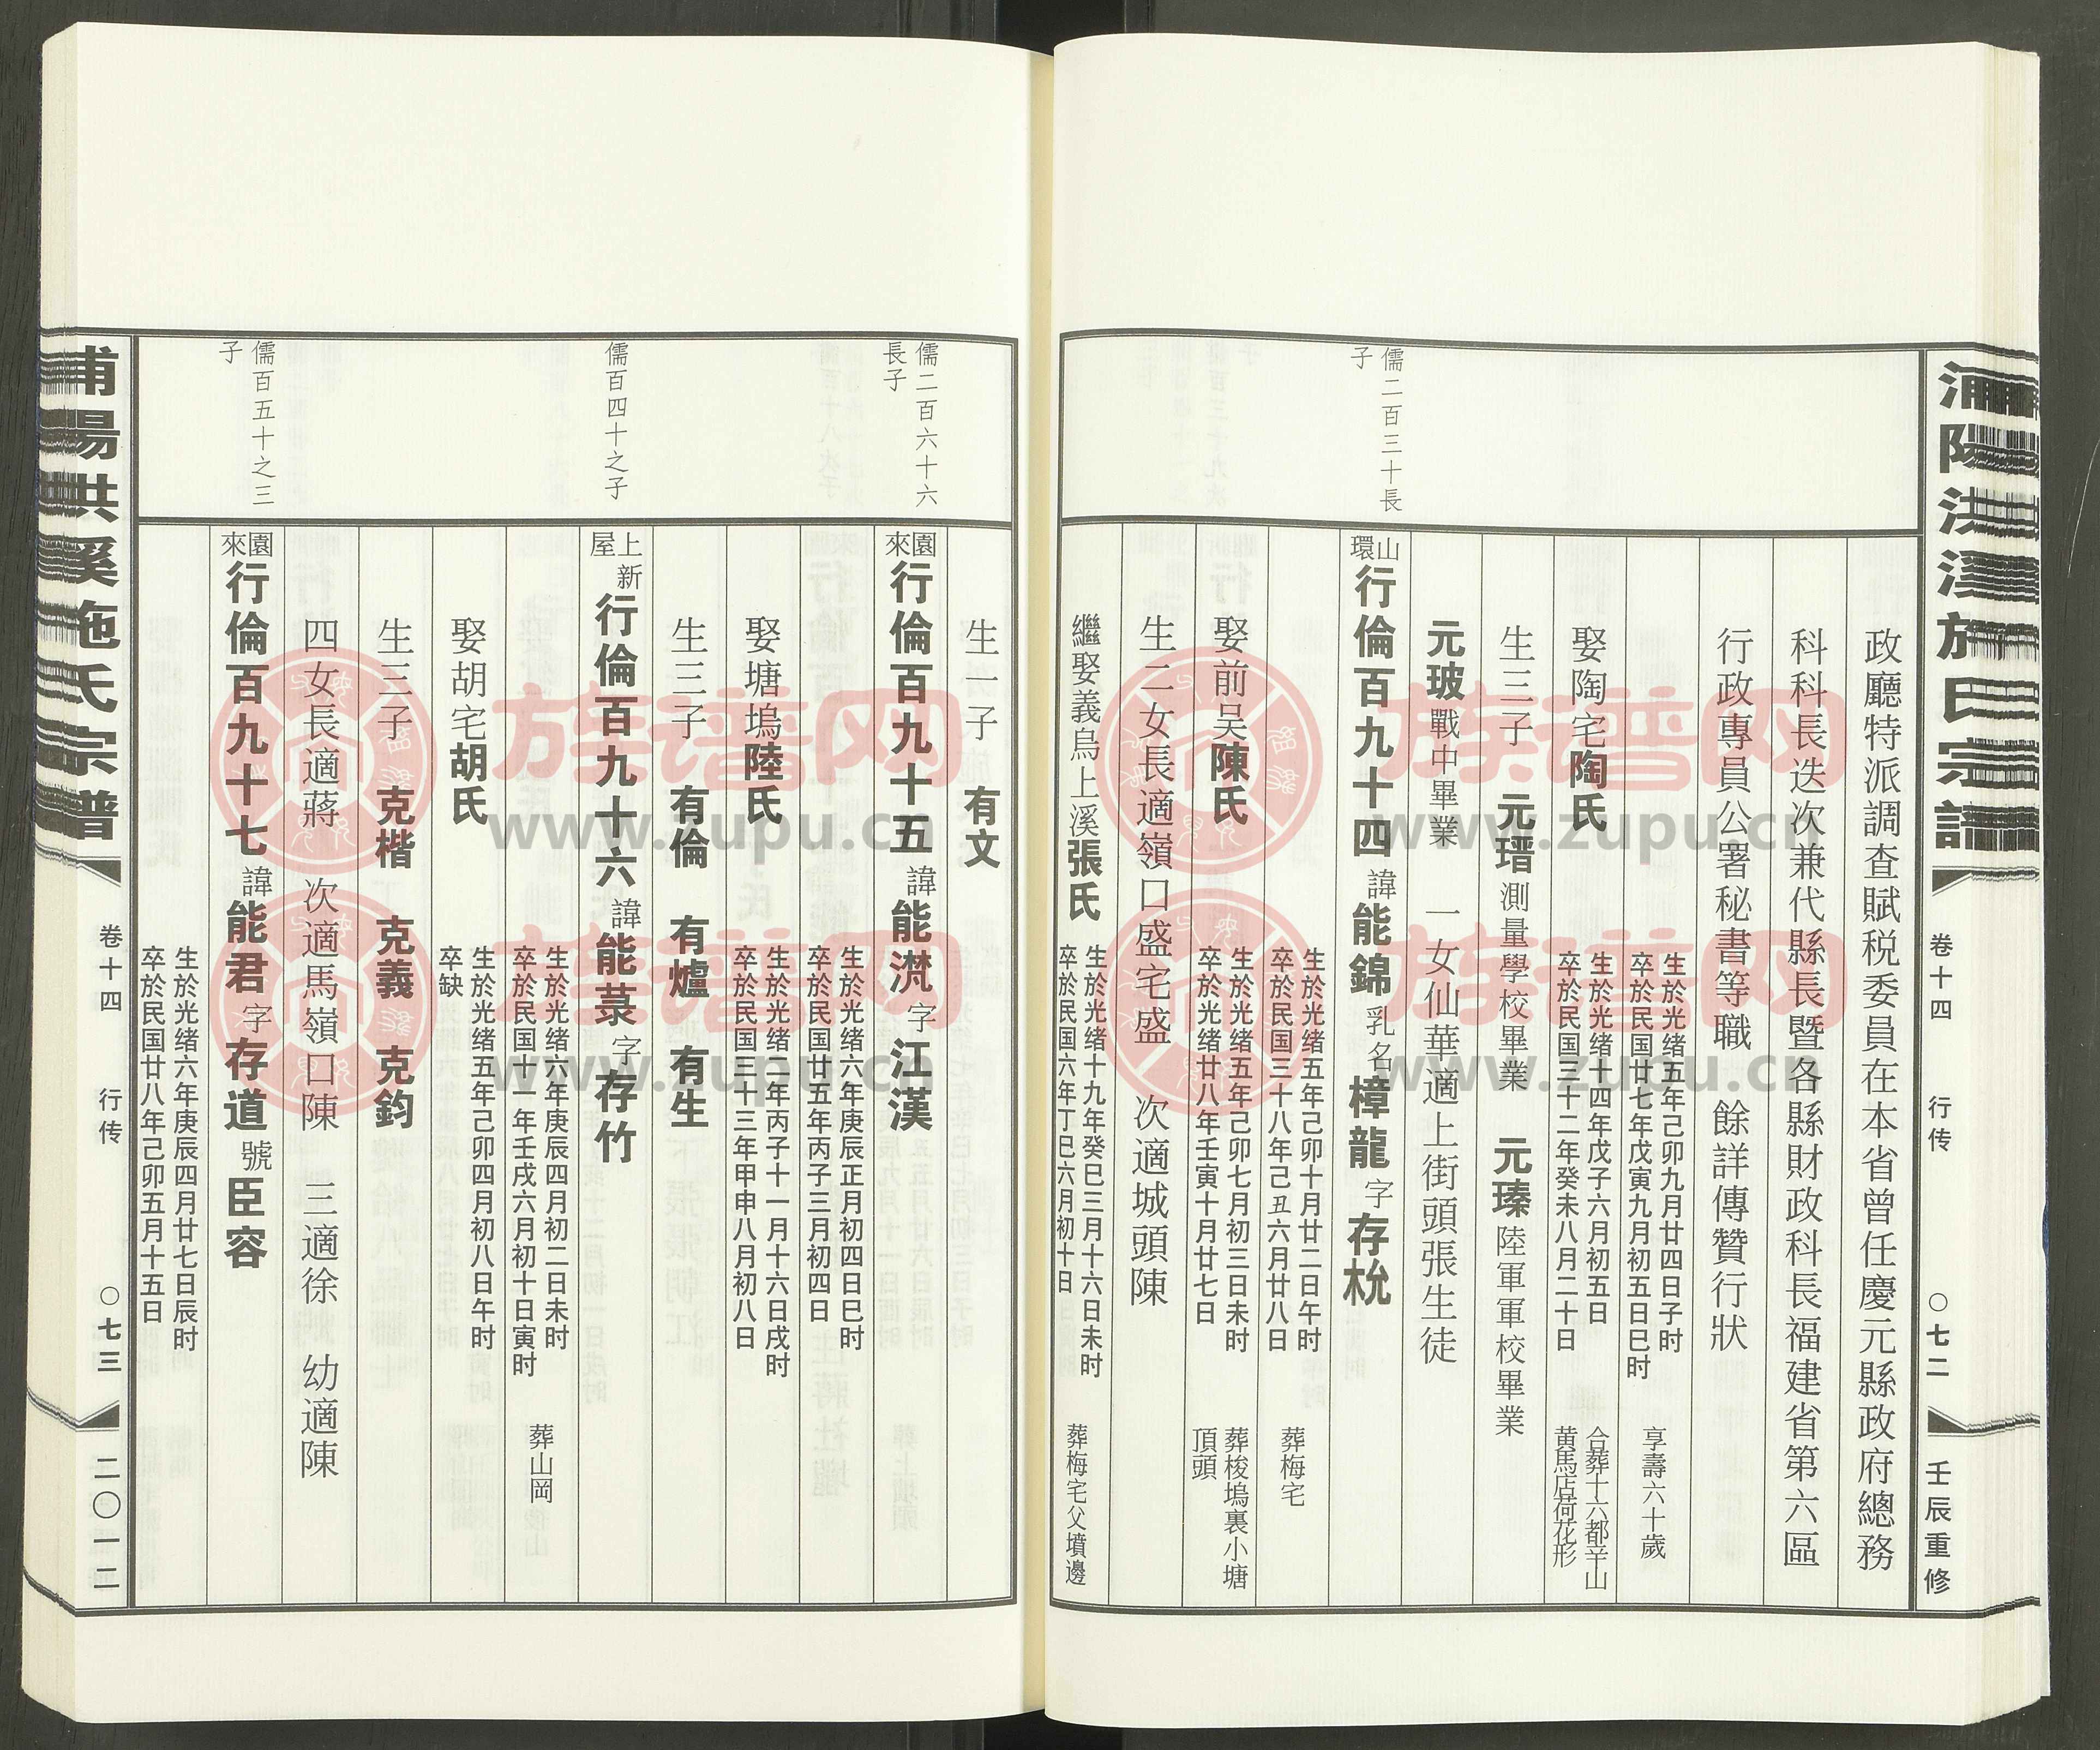 浦陽洪溪施氏宗譜
卷十四
行传
〇七二
壬辰重修
政廳特派調查賦税委員在本省曾任慶元縣政府總務
科科長迭次兼代縣長暨各縣財政科長福建省第六區
行政專員公署秘書等職 餘詳傳贊行狀
生於光绪五年己卯九月廿四日子时
卒於民国廿七年戊寅九月初五日巳时
享壽六十歲
娶陶宅陶氏
生於光绪十四年戊子六月初五日
卒於民国三十二年癸未八月二十日
合葬十六都辛山
黄馬店荷花形
生三子 元瑨測量學校畢業 元瑧陸軍軍校畢業
元玻戰中畢業 一女仙華適上街頭張生徒
儒二百三十長
子
山環行倫百九十四諱能錦乳名樟龍字存㭇
生於光绪五年己卯十月廿二日午时
卒於民国三十八年己丑六月廿八日
葬梅宅
娶前吴陳氏
生於光绪五年己卯七月初三日未时
卒於光绪廿八年壬寅十月廿七日
葬梭塢裏小塘
頂頭
生二女長適嶺口盛宅盛 次適城頭陳
繼娶義烏上溪張氏
生於光绪十九年癸巳三月十六日未时
卒於民国六年丁巳六月初十日
葬梅宅父墳邊
生一子 有文
儒二百六十六
長子
園來行倫百九十五諱能㴬字江漢
生於光绪六年庚辰正月初四日巳时
卒於民国廿五年丙子三月初四日
娶塘塢陸氏
生於光绪二年丙子十一月十六日戌时
卒於民国三十三年甲申八月初八日
生三子 有倫 有爐 有生
儒百四十之子
上新屋行倫百九十六諱能菉字存竹
生於光绪六年庚辰四月初二日未时
卒於民国十一年壬戌六月初十日寅时
葬山岡
娶胡宅胡氏
生於光绪五年己卯四月初八日午时
卒缺
生三子 克楷 克義 克鈞
四女長適蔣 次適馬嶺口陳 三適徐 幼適陳
儒百五十之三
子
園來行倫百九十七諱能君字存道號臣容
生於光绪六年庚辰四月廿七日辰时
卒於民国廿八年己卯五月十五日
浦陽洪溪施氏宗譜
卷十四
行传
〇七三
二〇一二
族谱网
www.zupu.cn
族谱网
www.zupu.cn
族谱网
www.zupu.cn
族谱网
www.zupu.cn